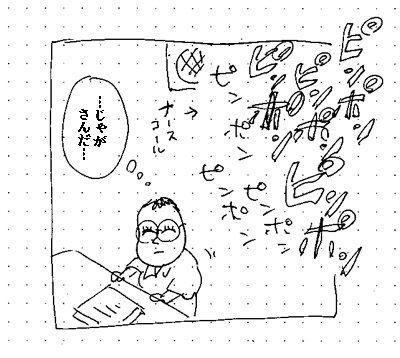 ピンポン
ピンポン
ピンポン
ピンポン
ピンポン
ピンポン
ナース
コール
…じゃが
さんだ…